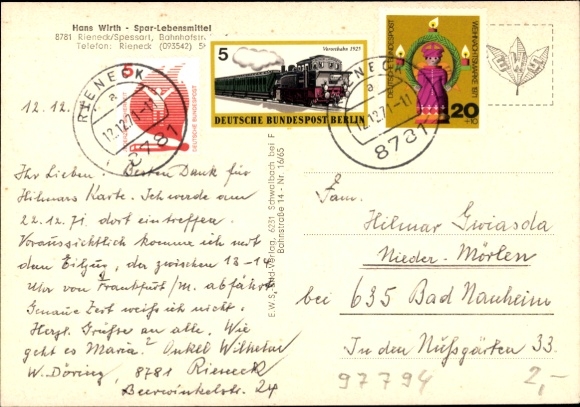 Hans Wirth - Spar-Lebensmittel
8781 Rieneck/Spessart, Bahnhofstr.
Telefon: Rieneck (093542)
5
DEUTSCHE BUNDESPOST
5
Vorortbahn 1925
DEUTSCHE BUNDESPOST BERLIN
DEUTSCHE BUNDESPOST
WEIHNACHTSMARKE 1971
20
+10
RIENECK
a
12.12.71-11
8781
RIENECK
a
12.12.71-11
8781
12.12.
Ihr Lieben. Besten Dank für
Hilmars Karte. Ich werde am
22.12.71 dort eintreffen.
Voraussichtlich komme ich mit
dem Eilzug, der zwischen 13-14
Uhr von Frankfurt/M. abfährt.
Genaue Zeit weiß ich nicht.
Herzl. Grüße an alle. Wie
geht es Maria? Onkel Wilhelm
W. Döring, 8781 Rieneck
24
E.W.S. Süd-Verlag, 6231 Schwalbach bei F
Bahnstraße 14 - Nr. 16/65
Fam.
Hilmar Gwiasda
Nieder-Mörlen
bei 635 Bad Nauheim
In den Nußgärten 33.
97794
2,-